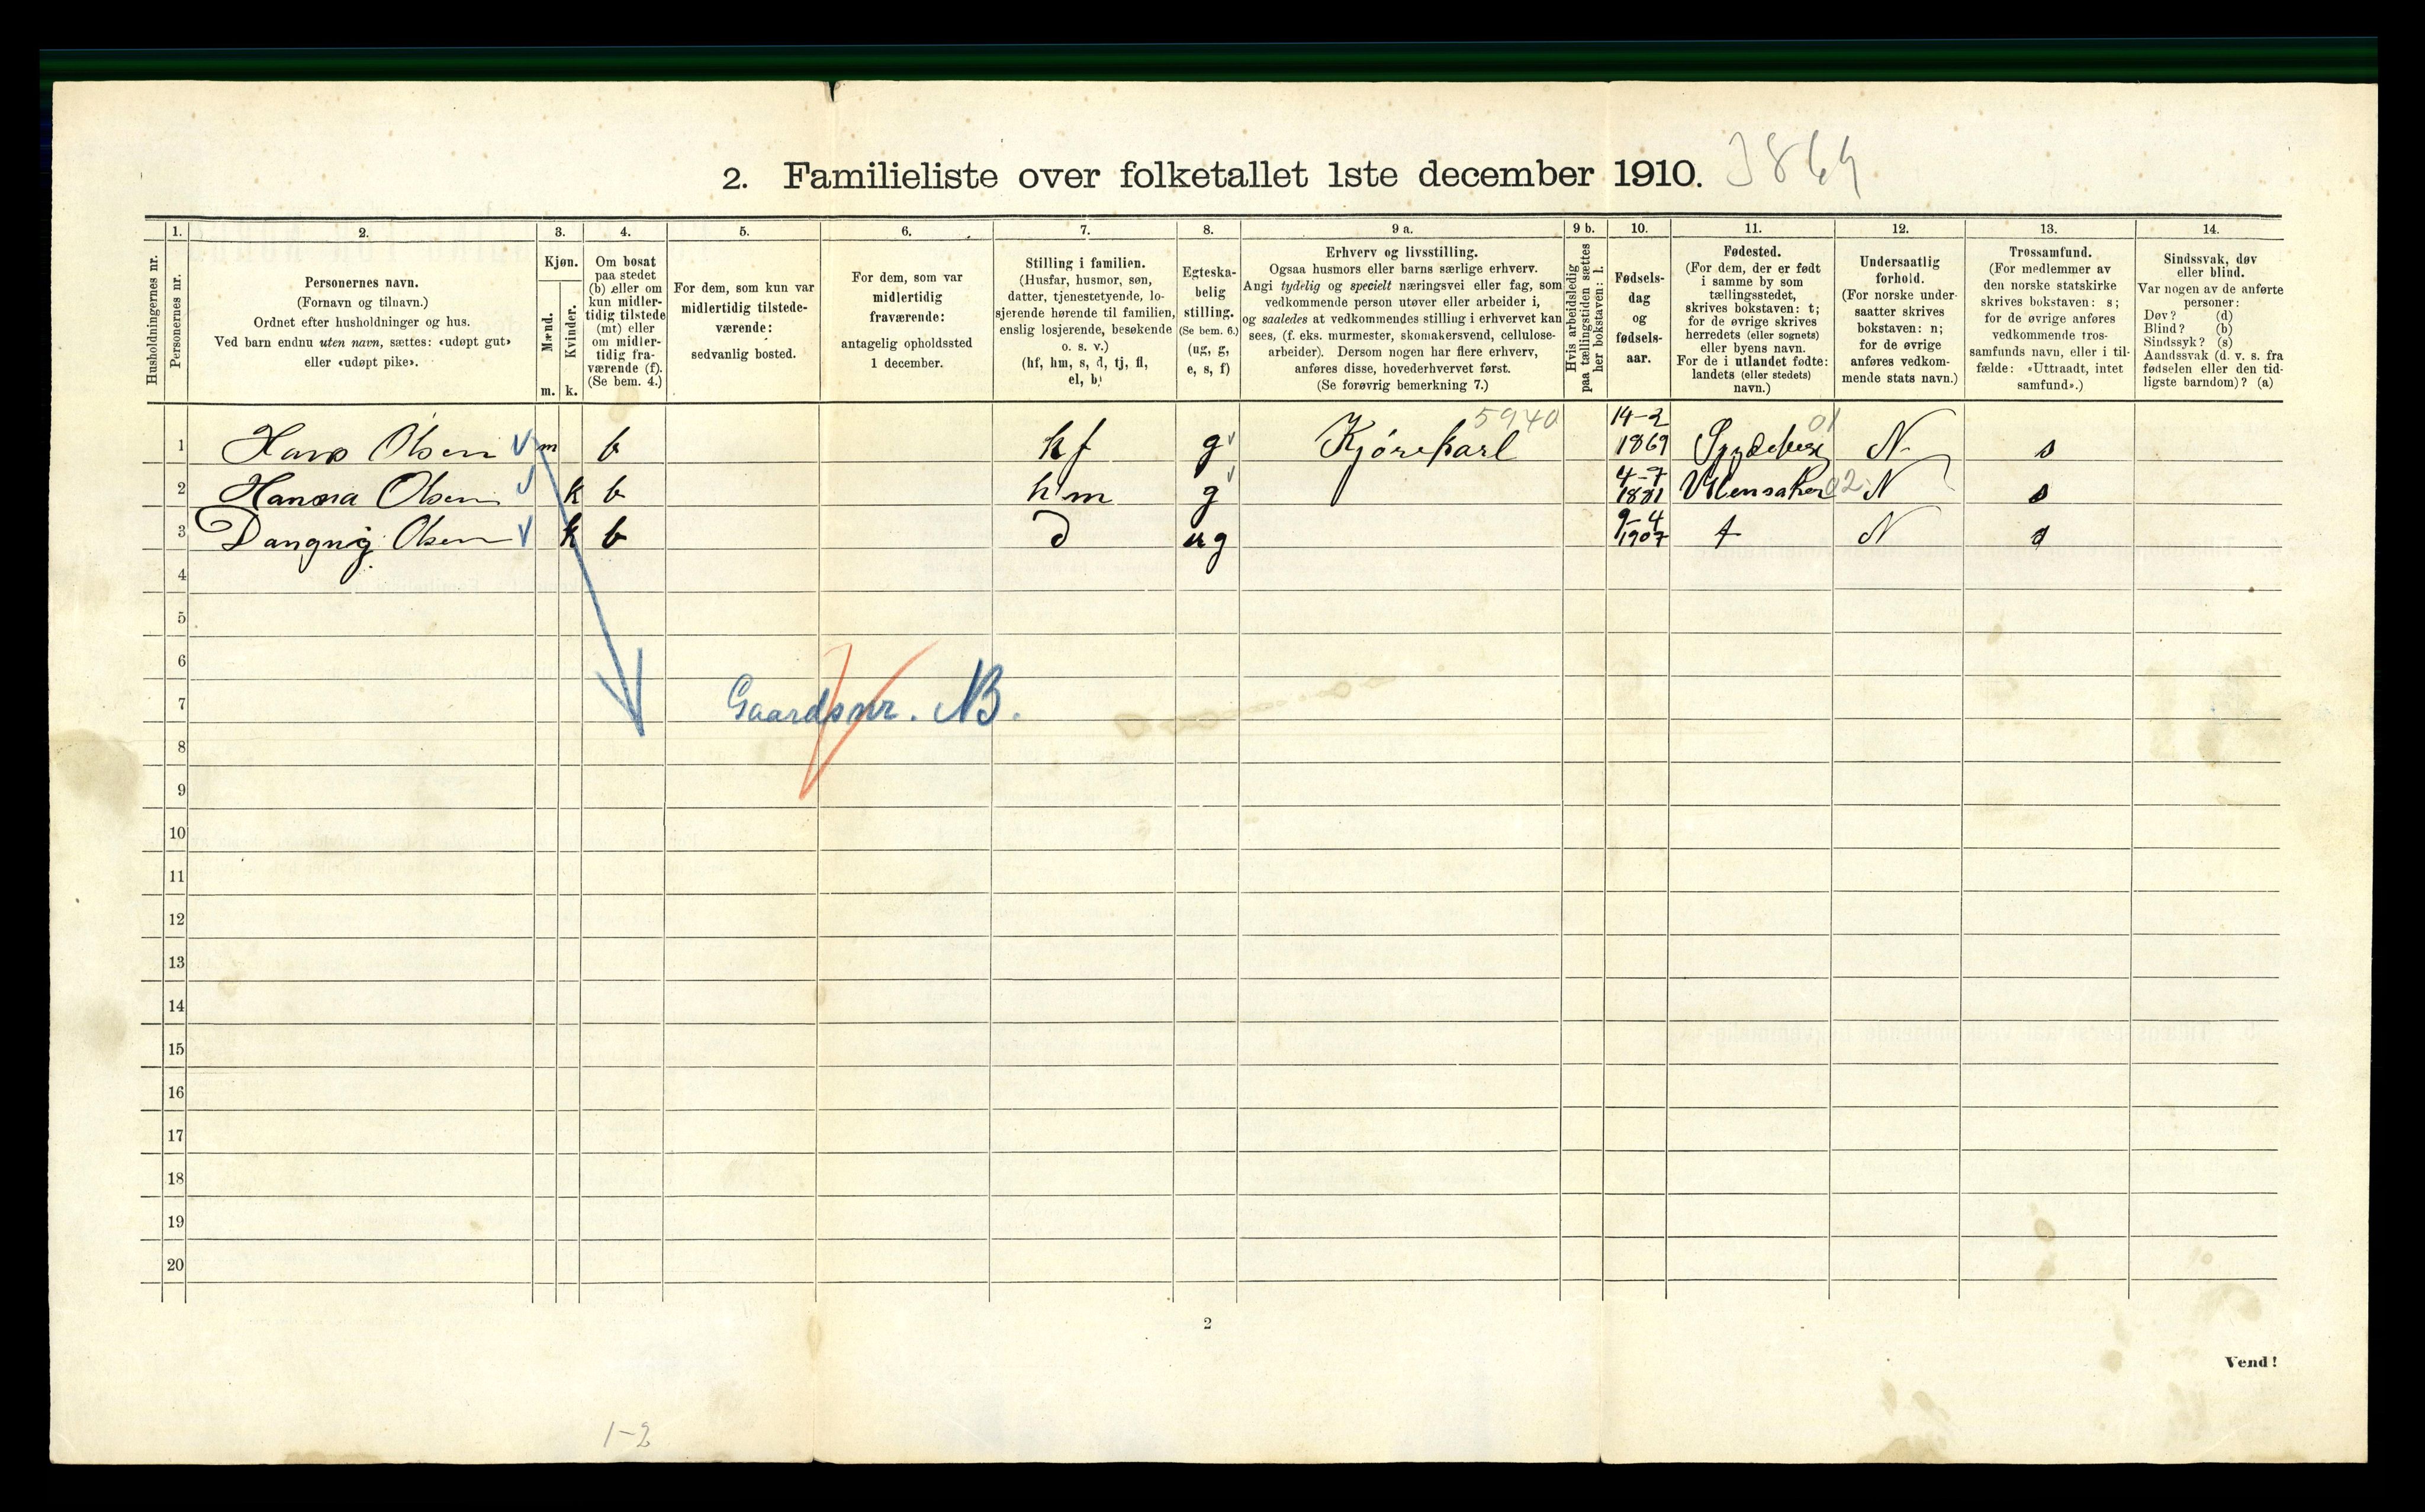 2. Familieliste over folketallet 1ste december 1910. 3864
1. 2. 3. 4. 5. 6. 7. 8. 9 a. 9 b. 10. 11. 12. 13. 14.
Husholdningernes nr.
Personernes nr.
Personernes navn.
(Fornavn og tilnavn.)
Ordnet efter husholdninger og hus.
Ved barn endnu uten navn, sættes: «udøpt gut»
eller «udøpt pike».
Kjøn.
Mænd.
Kvinder.
m. k.
Om bosat
paa stedet
(b) eller om
kun midler-
tidig tilstede
(mt) eller
om midler-
tidig fra-
værende (f).
(Se bem. 4.)
For dem, som kun var
midlertidig tilstede-
værende:
sedvanlig bosted.
For dem, som var
midlertidig
fraværende:
antagelig opholdssted
1 december.
Stilling i familien.
(Husfar, husmor, søn,
datter, tjenestetyende, lo-
sjerende hørende til familien,
enslig losjerende, besøkende
o. s. v.)
(hf, hm, s, d, tj, fl,
el, b)
Egteska-
belig
stilling.
(Se bem. 6.)
(ug, g,
e, s, f)
Erhverv og livsstilling.
Ogsaa husmors eller barns særlige erhverv.
Angi tydelig og specielt næringsvei eller fag, som
vedkommende person utøver eller arbeider i,
og saaledes at vedkommendes stilling i erhvervet kan
sees, (f. eks. murmester, skomakersvend, cellulose-
arbeider). Dersom nogen har flere erhverv,
anføres disse, hovederhvervet først.
(Se forøvrig bemerkning 7.)
Hvis arbeidsledig
paa tællingstiden sættes
her bokstaven: l.
Fødsels-
dag
og
fødsels-
aar.
Fødested.
(For dem, der er født
i samme by som
tællingsstedet,
skrives bokstaven: t;
for de øvrige skrives
herredets (eller sognets)
eller byens navn.
For de i utlandet fødte:
landets (eller stedets)
navn.)
Undersaatlig
forhold.
(For norske under-
saatter skrives
bokstaven: n;
for de øvrige
anføres vedkom-
mende stats navn.)
Trossamfund.
(For medlemmer av
den norske statskirke
skrives bokstaven: s;
for de øvrige anføres
vedkommende tros-
samfunds navn, eller i til-
fælde: «Uttraadt, intet
samfund».)
Sindssvak, døv
eller blind.
Var nogen av de anførte
personer:
Døv? (d)
Blind? (b)
Sindssyk? (s)
Aandssvak (d. v. s. fra
fødselen eller den tid-
ligste barndom)? (a)
1 Hans Olsen m b hf g Kjørekarl 5940 14-2 1869 01 N s
2 Olsen k b hm g 4-7 1881 Ullensaker 02 N s
3 Olsen k b d ug 9-4 1907 t N s
4
5
6
7
8
9
10
11
12
13
14
15
16
17
18
19
20
Gaardsnr. NB.
2
Vend!
1-2